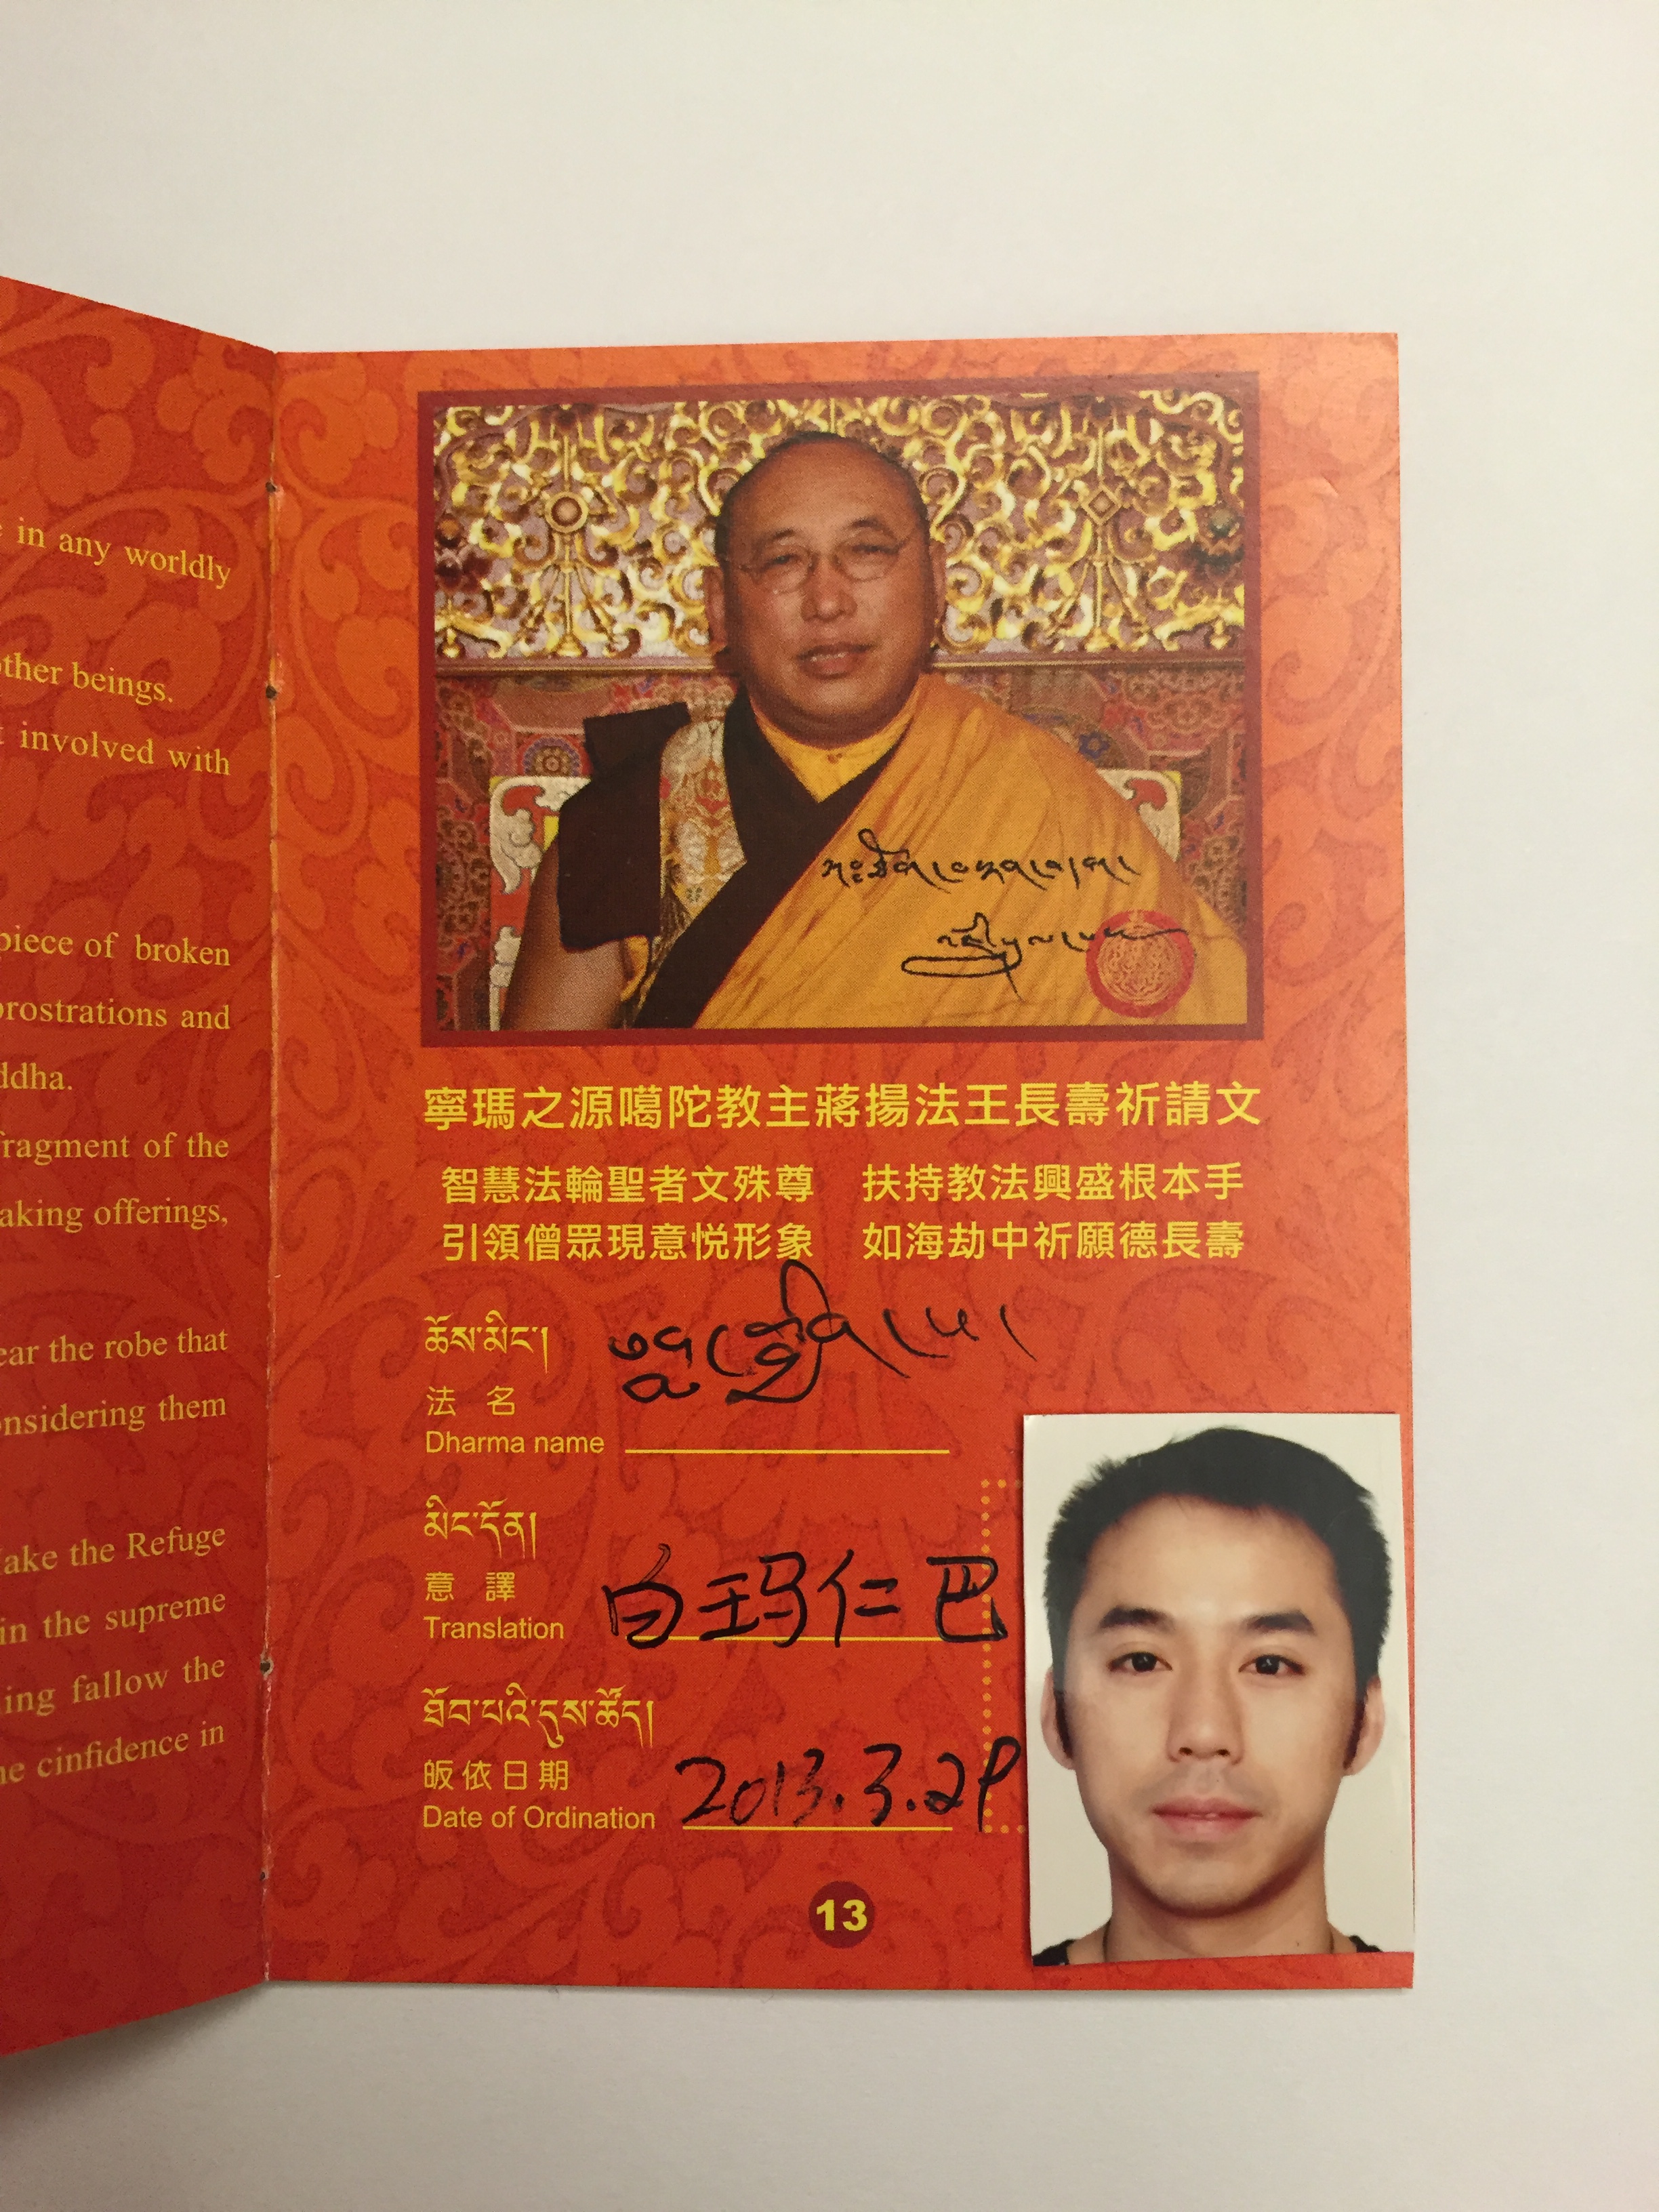 in any worldly
other beings.
involved with
piece of broken
prostrations and
ddha.
fragment of the
aking offerings,
ear the robe that
onsidering them
ake the Refuge
in the supreme
ing fallow the
he cinfidence in
寧瑪之源噶陀教主蔣揚法王長壽祈請文
智慧法輪聖者文殊尊 扶持教法興盛根本手
引領僧眾現意悅形象 如海劫中祈願德長壽
ཆོས་མིང་།
法 名
Dharma name
མིང་དོན།
意 譯
Translation 白玛仁巴
ཐོབ་པའི་དུས་ཚོད།
皈依日期
Date of Ordination 2013.3.29
13